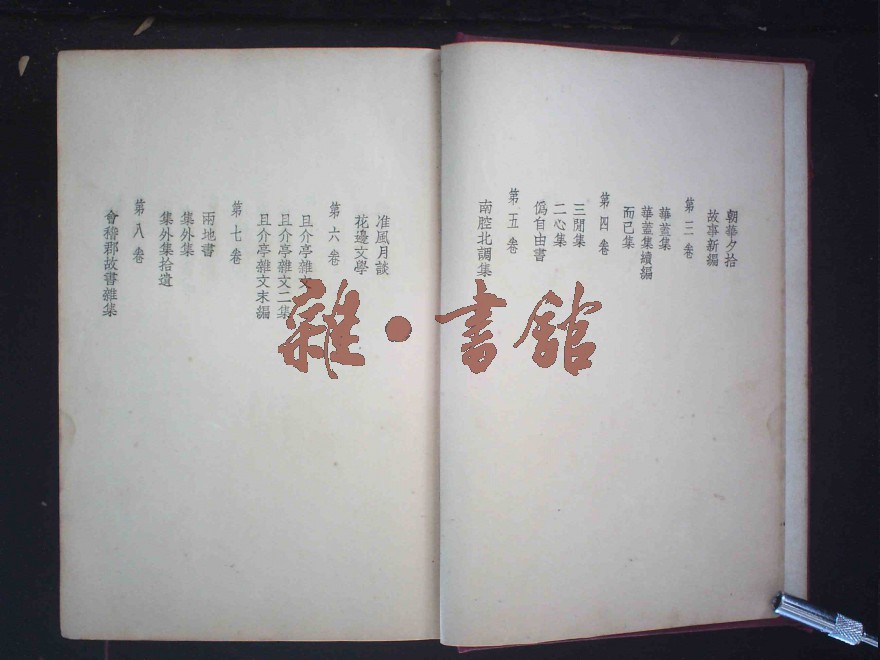 朝華夕拾
故事新編
第三卷
華蓋集
華蓋集續編
而已集
第四卷
三閒集
二心集
僞自由書
第五卷
南腔北調集
准風月談
花邊文學
第六卷
且介亭雜文
且介亭雜文二集
且介亭雜文末編
第七卷
兩地書
集外集
集外集拾遺
第八卷
會稽郡故書雜集
雜·書館